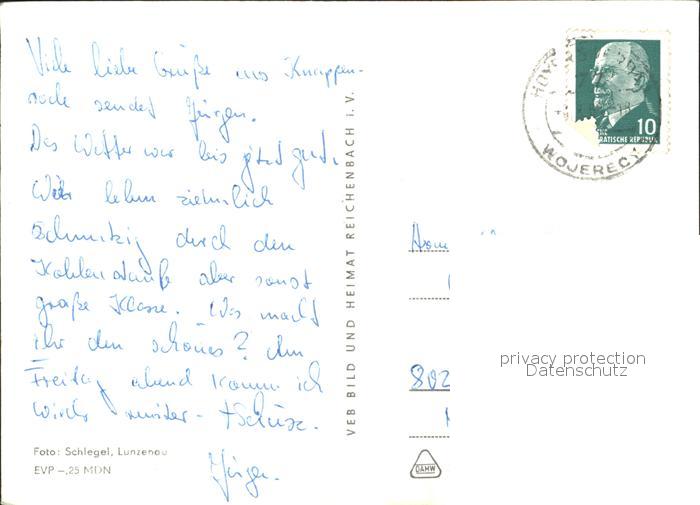 Viele liebe Grüße aus Knappen-
rode sendet Jürgen.
Das Wetter war bis jetzt gut.
Wir leben ziemlich
Schmutzig durch den
Kohlenstaub aber sonst
große Klasse. Was macht
ihr den schönes? Am
Freitag abend komm ich
wieder - tschüss.
Jürgen.
Foto: Schlegel, Lunzenau
EVP -,25 MDN
VEB BILD UND HEIMAT REICHENBACH i. V.
HOY
WOJERECY
10
RATISCHE REPUBLIK
802
DAMW
privacy protection
Datenschutz